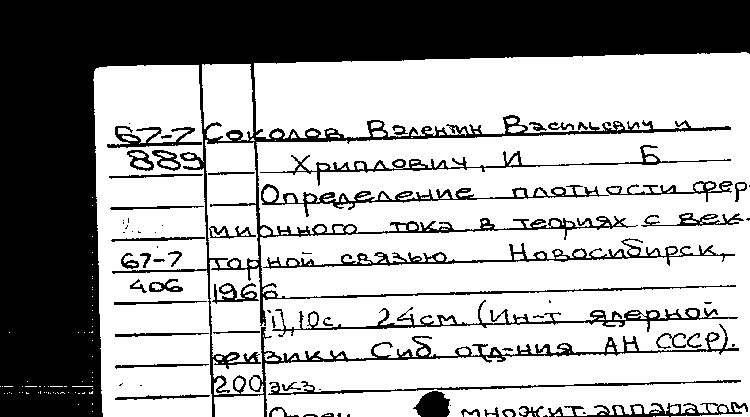 67-7 Соколов, Валентин Васильевич и
889 Хриплович, И Б
Определение плотности фер-
мионного тока в теориях с век-
67-7 торной связью. Новосибирск,
406 1966.
[i], 10с. 24см. (Ин-т ядерной
физики Сиб. отд-ния АН СССР).
200 экз.
множит. аппаратом